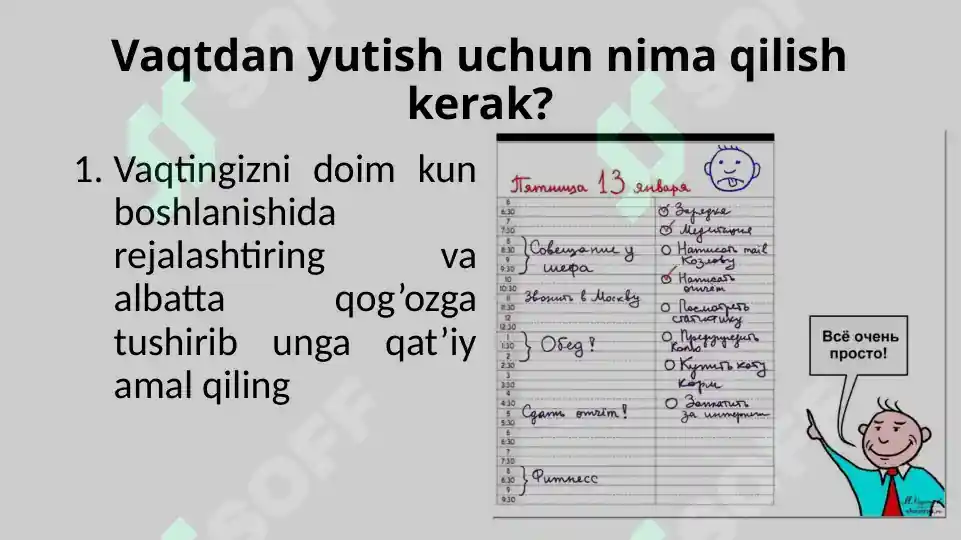 Vaqtdan yutish uchun nima qilish
kerak?
1. Vaqtingizni doim kun
boshlanishida
rejalashtiring va
albatta qog’ozga
tushirib unga qat’iy
amal qiling
Пятница 13 января
6
6:30
7
7:30
8
8:30
9
9:30
10
10:30
11
11:30
12
12:30
1
1:30
2
2:30
3
3:30
4
4:30
5
5:30
6
6:30
7
7:30
8
8:30
9
9:30
Совещание у
шефа
Звонить в Москву
Обед!
Сдать отчёт!
Фитнесс
Зарядка
Медитация
Написать mail
Козлову
Написать
отчёт
Посмотреть
статистику
Предупредить
Колю
Купить коту
корм
Заплатить
за интернет
Всё очень
просто!
SOFF